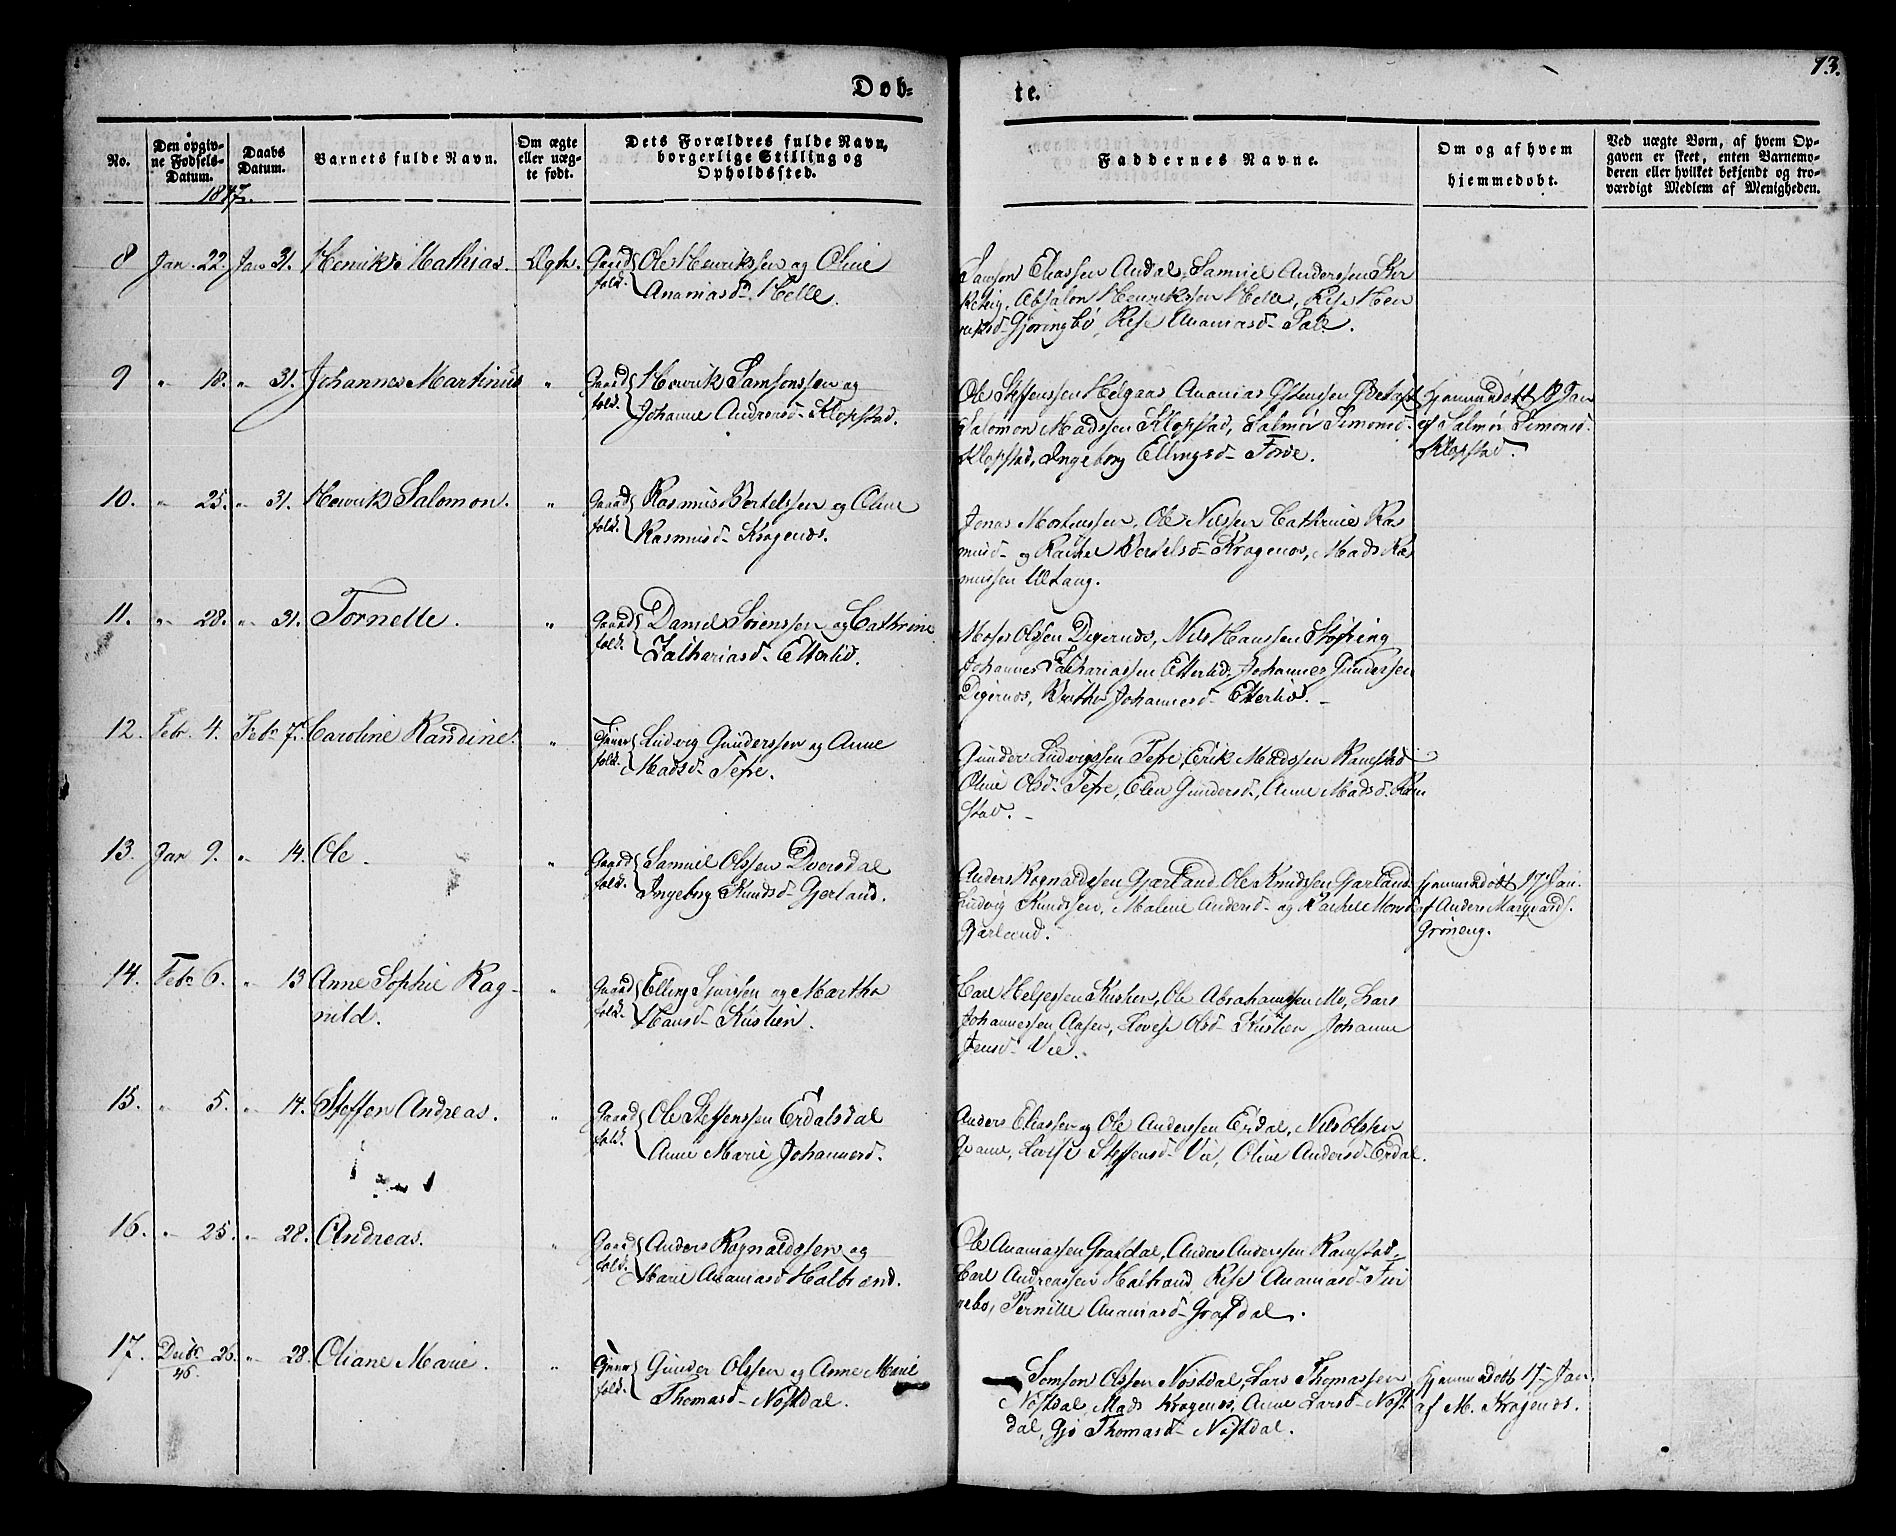 Døb-
te.
13.
No.
Den opgiv-
ne Fødsels-
Datum.
Daabs
Datum.
Barnets fulde Navn.
Om ægte
eller uæg-
te født.
Dets Forældres fulde Navn,
borgerlige Stilling og
Opholdssted.
Faddernes Navne.
Om og af hvem
hjemmedøbt.
Ved uægte Børn, af hvem Op-
gaven er skeet, enten Barnemo-
deren eller hvilket bekjendt og tro-
værdigt Medlem af Menigheden.
1847.
8 Jan. 22. Jan 31. Henrik Mathias. Ægte. Gaard
fold. Ole Henrikssen og Oline
Ananiasd. Helle.
Samson Eliassen Andal, Samuel Anderssen
Absalon Henrikssen Helle, Hen
Gjøringbø, Ananiasd. Sale.
9 " 18. " 31. Johannes Martinus " Gaard
fold. Henrik Samsonssen og
Johanne Andersd. Klopstad.
Ole Steffenssen Helgaas Ananias
Salomon Madssen Klopstad, Salmør Simonsd.
Klopstad, Ingeborg Ellingsd. Førde.
Hjemmedøbt 18 Jan
af Salmør Simonsd.
Klopstad.
10. " 25. " 31. Henrik Salomon. " Gaard
fold. Rasmus Bertelssen og Oline
Rasmusd. Kragenæs.
Jonas Mortenssen, Ole Nilssen Cathrine Ras
musd. og Rachel Bertelsd. Kragenæs, Mads Ra
mussen
11. " 28. " 31. Tornelle. " Gaard
fold. Daniel Sørenssen og Cathrine
Zakhariasd. Ettelid.
Moses Olssen Digernæs, Nils Hanssen
Johannes Zakhariassen Ettelid, Johannes Gunderssen
Digernæs, Britha Johannesd. Ettelid.
12. Febr. 4. Febr 7. Caroline Randine. " fold. Ludvig Gunderssen og Anne
Madsd. Tefre.
Gunder Ludvigssen Tefre, Erik Madssen Ramstad
Oline Olsd. Tefre, Elen Gundersd., Anne Madsd. Ram
stad.
13. Jan 9. " 14. Ole. " Gaard
fold. Samuel Olssen Dvergsdal
Ingeborg Knudsd. Gjørland.
Anders Rognaldssen Gjørland Ole Knudssen Gjørland
Ludvig Knudssen, Malene Andersd. og Rachel Monsd.
Gjørland.
Hjemmedøbt 17 Jan.
af Anders Marqvards.
Grøneng.
14. Febr 6. " 13 Anne Sophie Rag-
nild. " Gaard
fold. Elling og Martha
Hansd. Kuslien.
Carl Helgessen Kuslien, Ole Abrahamssen Mo, Lars
Johannessen Aasen, Lovise Olsd. Kuslien Johanne
Jensd. Vie.
15. " 5. " 14. Steffen Andreas. " Gaard
fold. Ole Steffenssen Erdalsdal
Anne Marie Johannesd.
Anders Eliassen og Ole Anderssen Erdal, Nils Olssen
Lovise Steffensd. Vie, Oline Andersd. Erdal.
16. " 25. " 28. Andreas. " Gaard
fold. Anders Rognaldssen og
Marie Ananiasd. Halbrend.
Ole Ananiassen Grafdal, Anders Anderssen Ramstad,
Carl Andreassen Halbrend, Ananiasd.
Pernille Ananiasd. Grafdal.
17. Decbr 26. " 28. Oliane Marie. " fold. Gunder Olssen og Anne Marie
46.
Thomasd. Nøstdal.
Samson Olssen Nøstdal, Lars Thomassen
Nøstdal, Mads Kragenæs, Anne Larsd. Nøst
dal, Thomasd. Nøstdal.
Hjemmedøbt 17 Jan.
af M. Kragenæs.